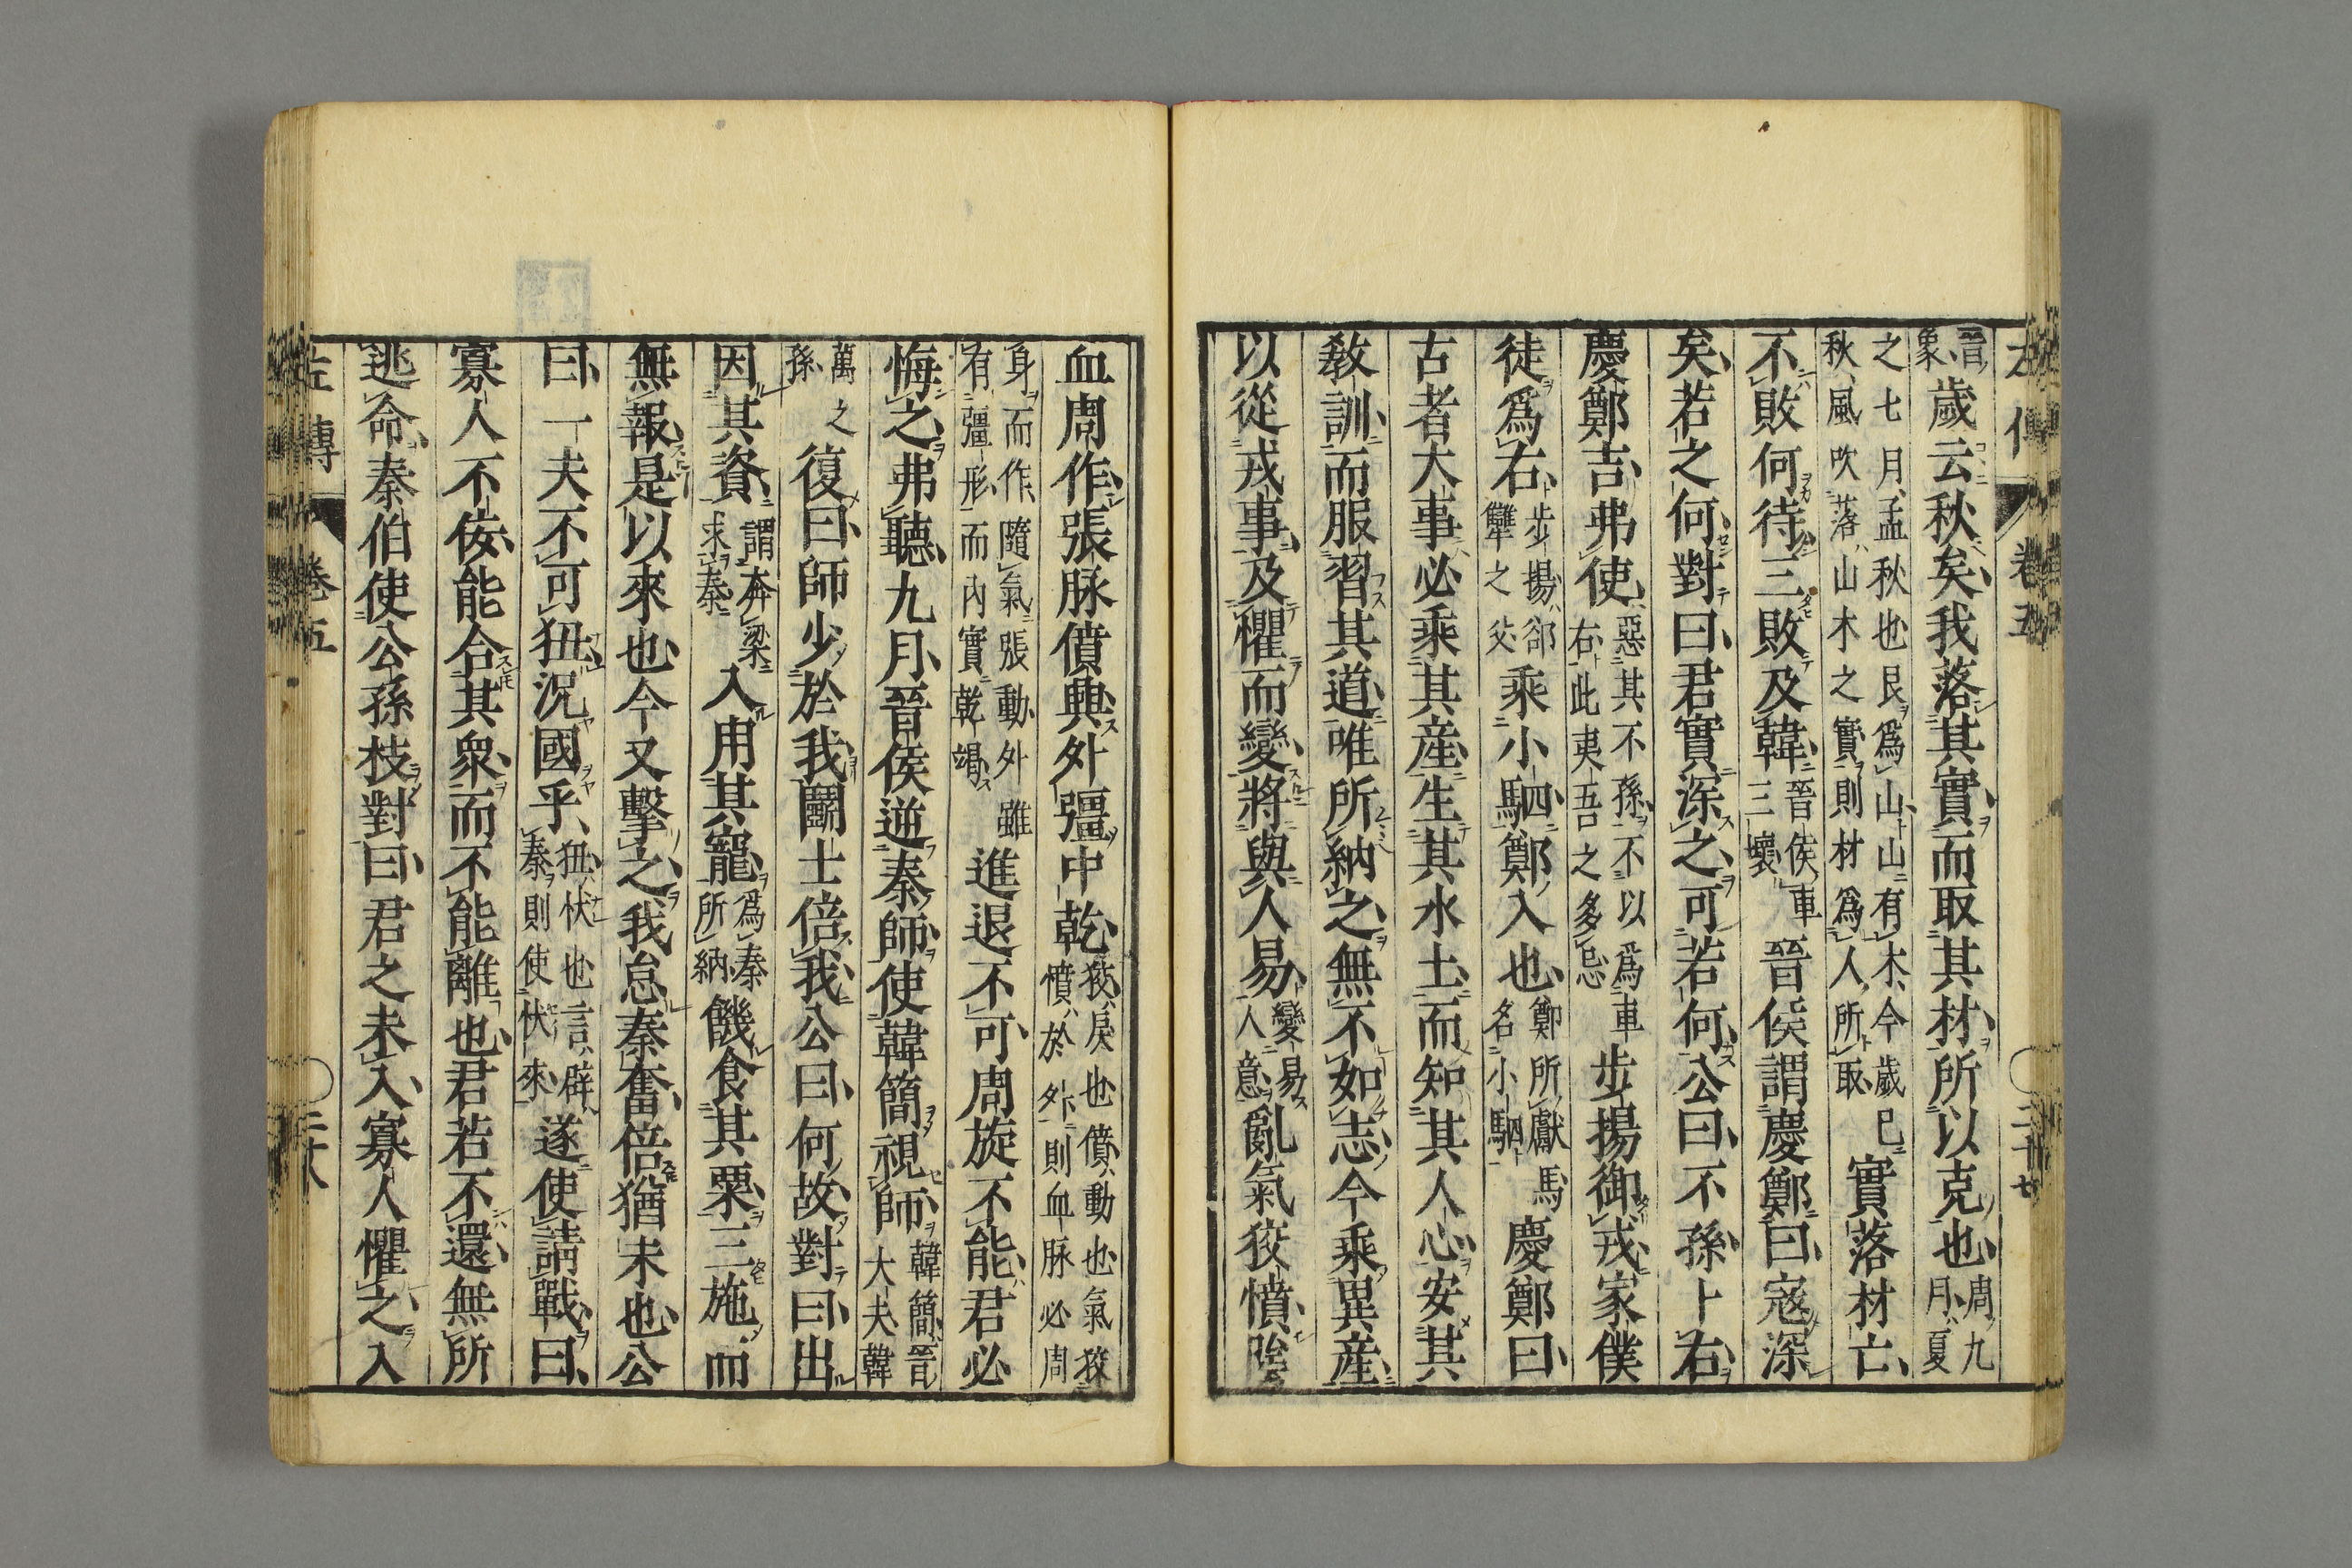 左傳 卷五 二十七
晉象歲云秋矣我落其實而取其材所以克也周九月夏
之七月孟秋也艮爲山山有木今歲已秋風吹落山木之實則材爲人所取實落材亡
不敗何待三敗及韓晉侯車三壞晉侯謂慶鄭曰寇深
矣若之何對曰君實深之可若何公曰不孫卜右
慶鄭吉弗使惡其不孫不以爲車右此夷吾之多忌步揚御戎家僕
徒爲右步揚郤犨之父乘小駟鄭入也鄭所獻馬名小駟慶鄭曰
古者大事必乘其產生其水土而知其人心安其
敎訓而服習其道唯所納之無不如志今乘異產
以從戎事及懼而變將與人易變易人意亂氣狡憤陰
血周作張脉僨興外彊中乾狡戾也僨動也氣狡憤於外則血脉必周
身而作隨氣張動外雖有彊形而內實乾竭進退不可周旋不能君必
悔之弗聽九月晉侯逆秦師使韓簡視師韓簡晉大夫韓
萬之孫復曰師少於我鬬士倍我公曰何故對曰出
因其資謂奔梁求秦入用其寵爲秦所納饑食其粟三施而
無報是以來也今又擊之我怠秦奮倍猶未也公
曰一夫不可狃況國乎狃忕也言辟秦則使忕來遂使請戰曰
寡人不佞能合其衆而不能離也君若不還無所
逃命秦伯使公孫枝對曰君之未入寡人懼之入
左傳 卷五